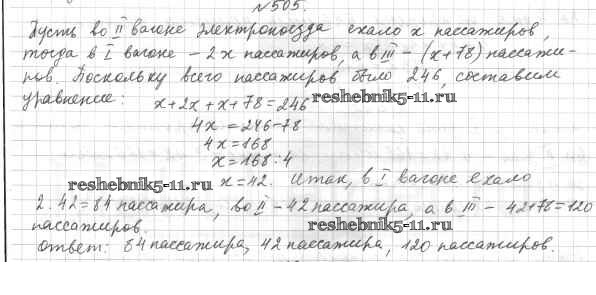 №505.
Пусть во II вагоне электропоезда ехало x пассажиров,
тогда в I вагоне – 2x пассажиров, а в III – (x+78) пассажи-
ров. Поскольку всего пассажиров было 246, составим
уравнение: x+2x+x+78=246
reshebnik5-11.ru
4x=246-78
4x=168
x=168:4
reshebnik5-11.ru
x=42. Итак, в I вагоне ехало
2·42=84 пассажира, во II – 42 пассажира, а в III – 42+78=120
пассажиров.
reshebnik5-11.ru
Ответ: 84 пассажира, 42 пассажира, 120 пассажиров.